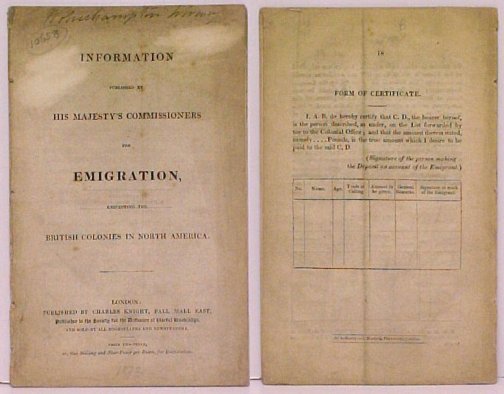 INFORMATION
PUBLISHED BY
HIS MAJESTY'S COMMISSIONERS
FOR
EMIGRATION,
RESPECTING THE
BRITISH COLONIES IN NORTH AMERICA.
LONDON:
PUBLISHED BY CHARLES KNIGHT, PALL MALL EAST,
Publisher to the Society for the Diffusion of Useful Knowledge,
AND SOLD BY ALL BOOKSELLERS AND NEWSVENDERS.
PRICE TWO-PENCE,
or, One Shilling and Nine-Pence per Dozen, for Distribution.
FORM OF CERTIFICATE.
I, A. B. do hereby certify that C. D., the bearer hereof,
is the person described, as under, on the List forwarded by
me to the Colonial Office; and that the amount therein stated,
namely....Pounds, is the true amount which I desire to be
paid to the said C. D.
(Signature of the person making
the Deposit on account of the Emigrant.)
No. Name. Age. Trade or Calling. Amount to be given. General Remarks. Signature or mark of the Emigrant.